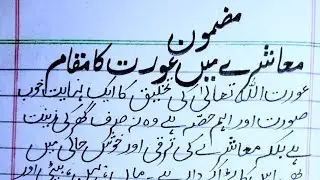 مضمون
معاشرے میں عورت کا مقام
عورت اللہ تعالیٰ کی تخلیق کا ایک نہایت خوب
صورت اور اہم حصہ ہے وہ نہ صرف گھر کی زینت
ہے بلکہ معاشرے کی ترقی اور خوش حالی میں
بھی اس کا بڑا کردار ہے۔ ماں، بیٹی اور